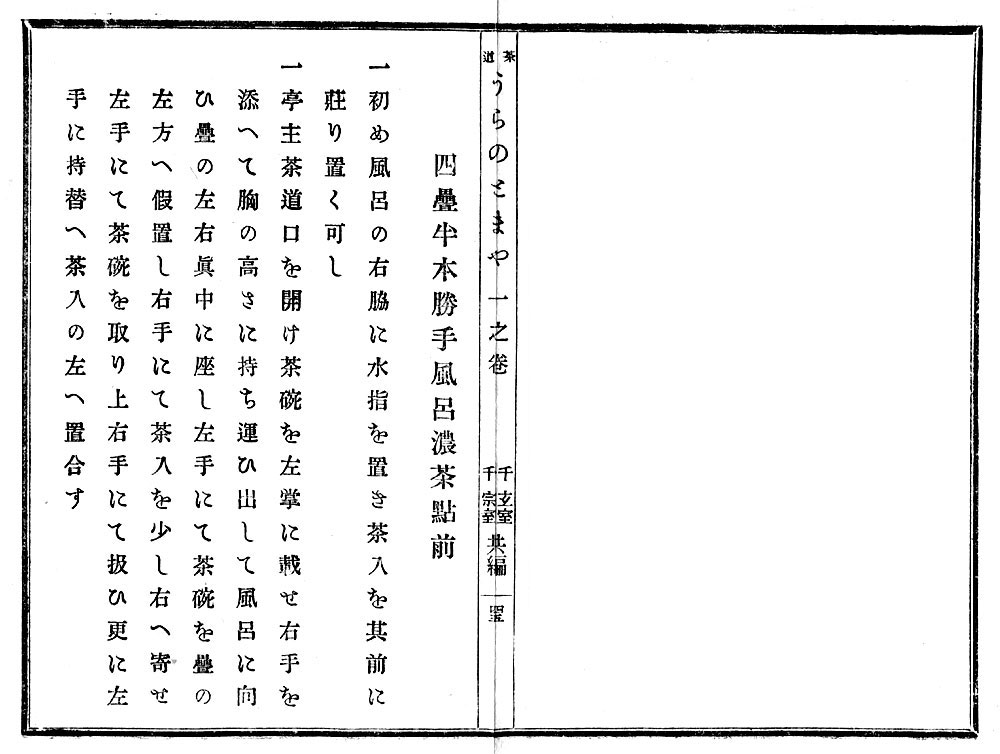 茶道 うらのとまや 一之卷
千玄室
千宗室
共編
四疊半本勝手風呂濃茶點前
一初め風呂の右脇に水指を置き茶入を其前に
莊り置く可し
一亭主茶道口を開け茶碗を左掌に載せ右手を
添へて胸の高さに持ち運ひ出して風呂に向
ひ疊の左右眞中に座し左手にて茶碗を疊の
左方へ假置し右手にて茶入を少し右へ寄せ
左手にて茶碗を取り上右手にて扱ひ更に左
手に持替へ茶入の左へ置合す